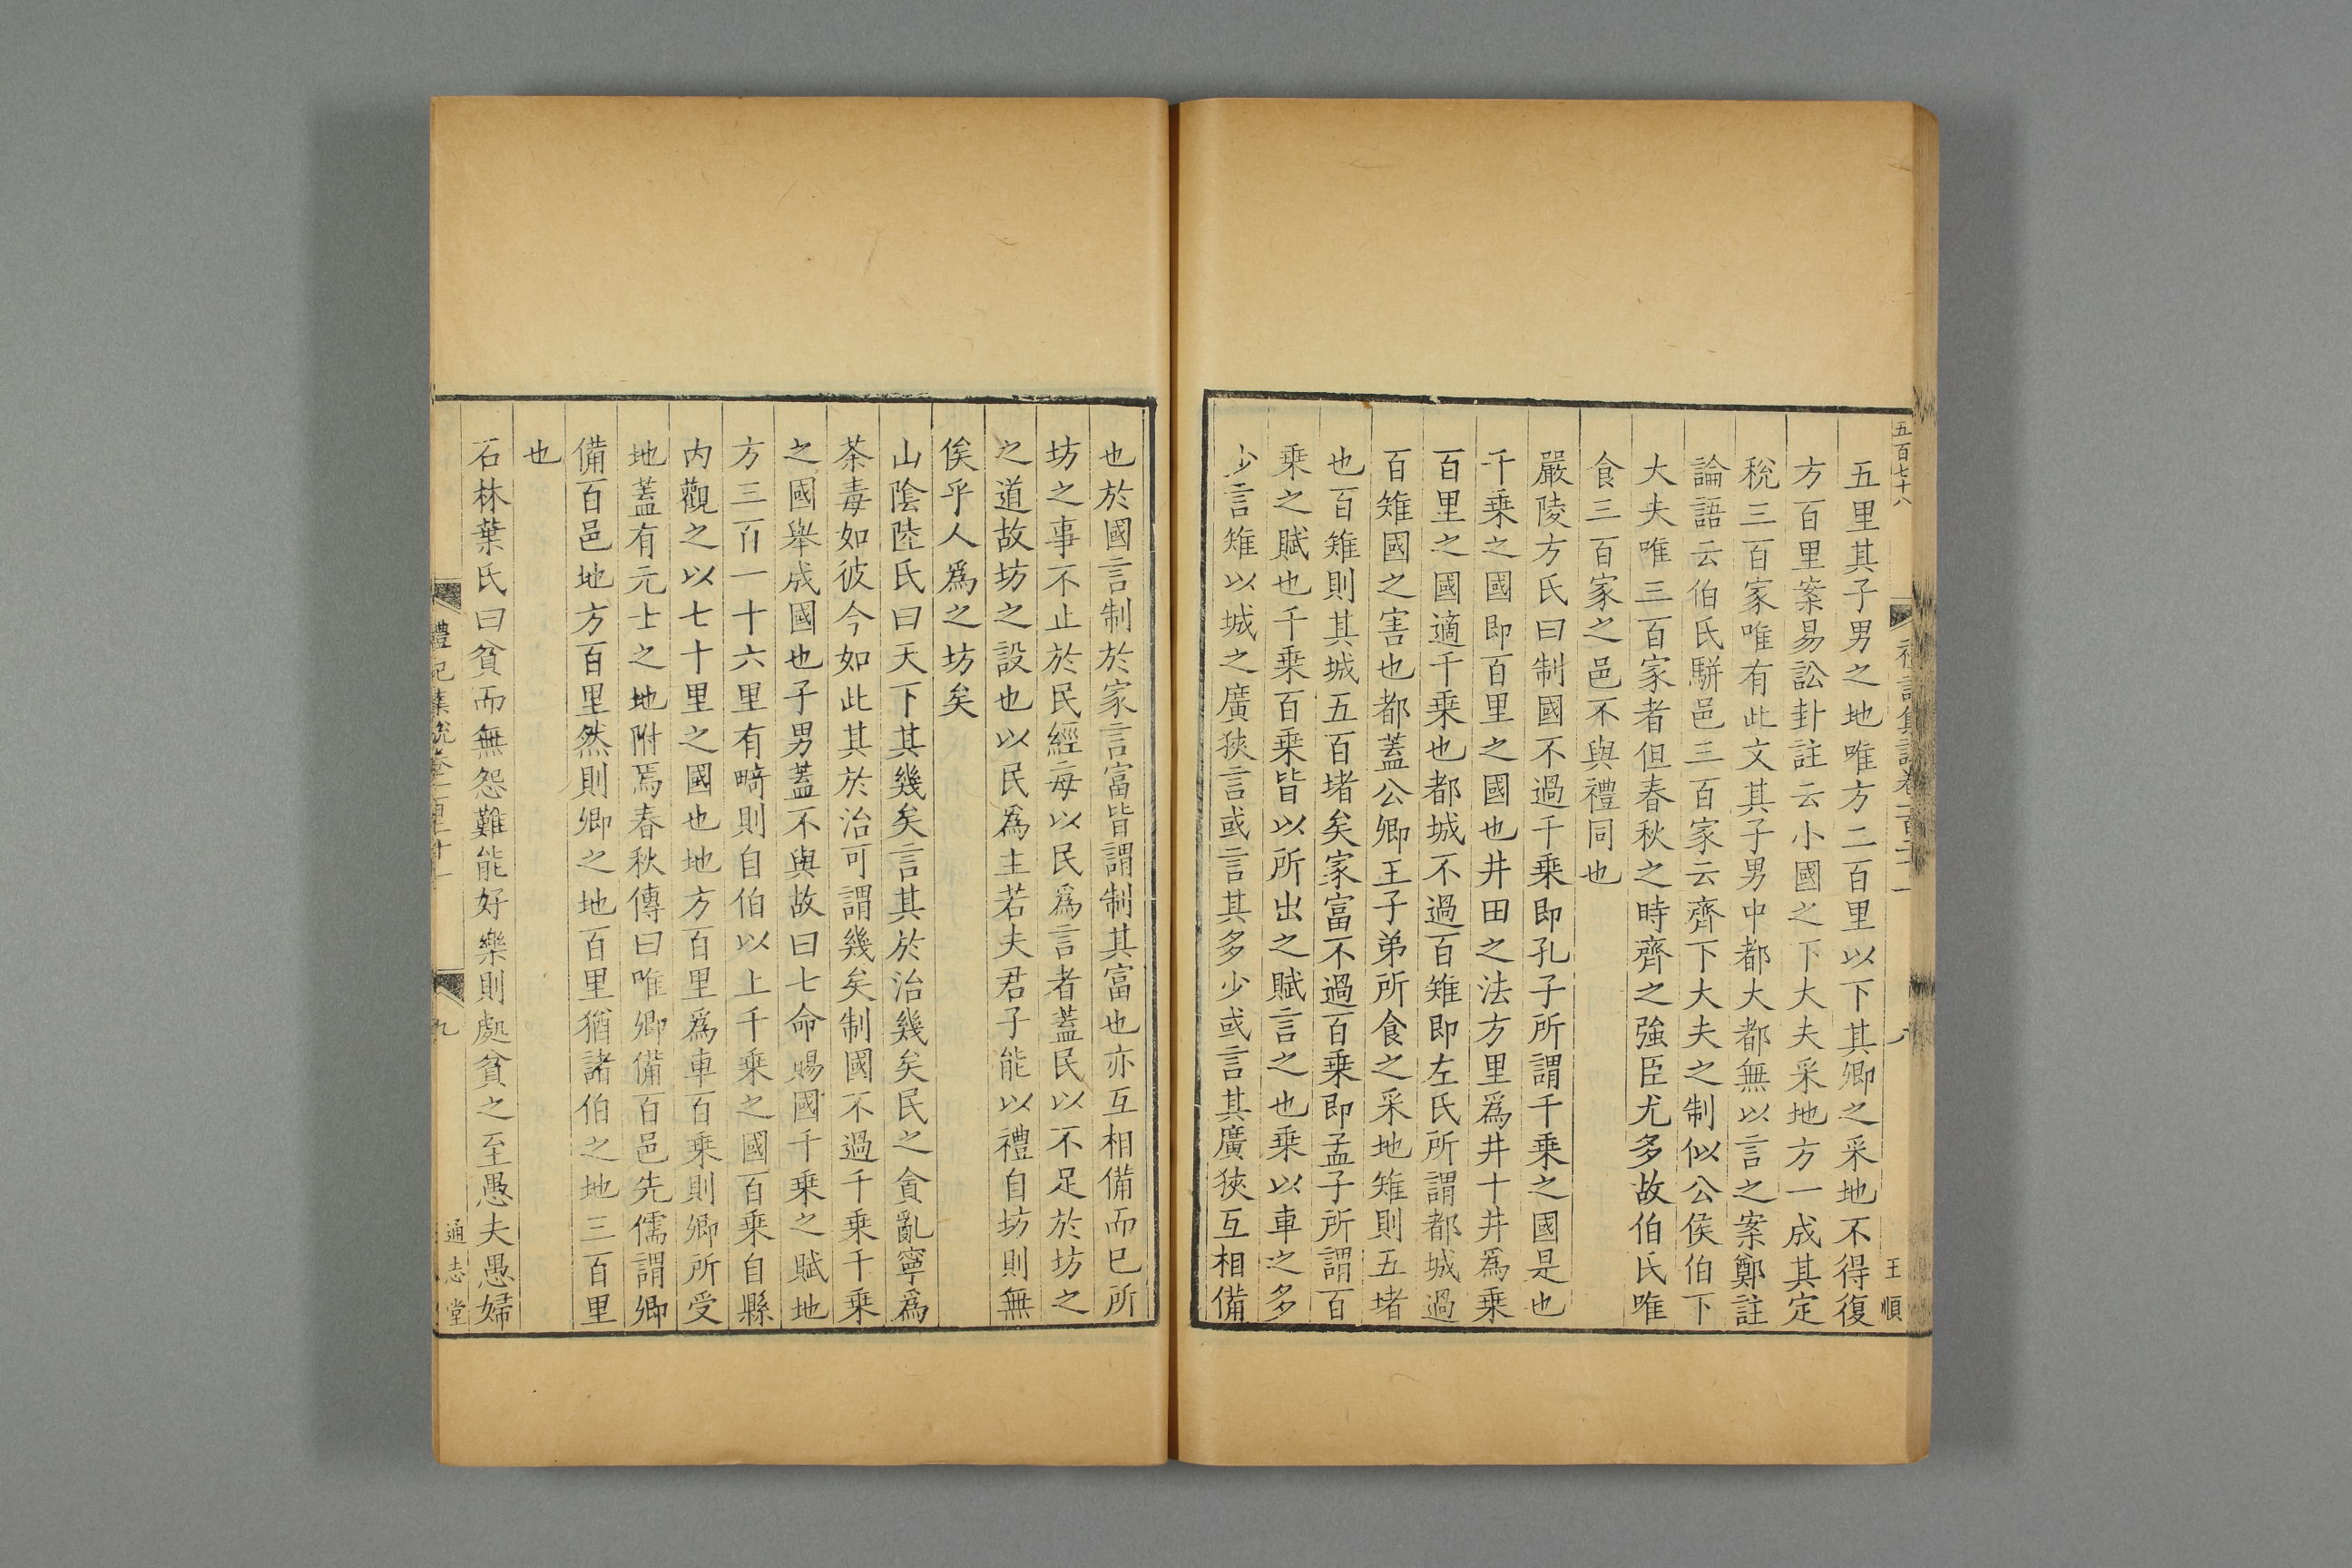 五百七十八
王順
五里其子男之地唯方二百里以下其卿之采地不得復
方百里案易訟卦註云小國之下大夫采地方一成其定
稅三百家唯有此文其子男中都大都無以言之案鄭註
論語云伯氏駢邑三百家云齊下大夫之制似公侯伯下
大夫唯三百家者但春秋之時齊之強臣尤多故伯氏唯
食三百家之邑不與禮同也
嚴陵方氏曰制國不過千乗即孔子所謂千乗之國是也
千乗之國即百里之國也井田之法方里爲井十井爲乗
百里之國適千乗也都城不過百雉即左氏所謂都城過
百雉國之害也都蓋公卿王子弟所食之采地雉則五堵
也百雉則其城五百堵矣家富不過百乗即孟子所謂百
乗之賦也千乗百乗皆以所出之賦言之也乗以車之多
少言雉以城之廣狹言或言其多少或言其廣狹互相備
也於國言制於家言富皆謂制其富也亦互相備而已所
坊之事不止於民經每以民爲言者蓋民以不足於坊之
之道故坊之設也以民爲主若夫君子能以禮自坊則無
俟乎人爲之坊矣
山陰陸氏曰天下其幾矣言其於治幾矣民之貪亂寧爲
荼毒如彼今如此其於治可謂幾矣制國不過千乗千乗
之國舉成國也子男蓋不與故曰七命賜國千乗之賦地
方三百一十六里有畸則自伯以上千乗之國百乗自縣
内觀之以七十里之國也地方百里爲車百乗則卿所受
地蓋有元士之地附焉春秋傳曰唯卿備百邑先儒謂卿
備百邑地方百里然則卿之地百里猶諸伯之地三百里
也
石林葉氏曰貧而無怨難能好樂則處貧之至愚夫愚婦
禮記集說卷
九
通志堂